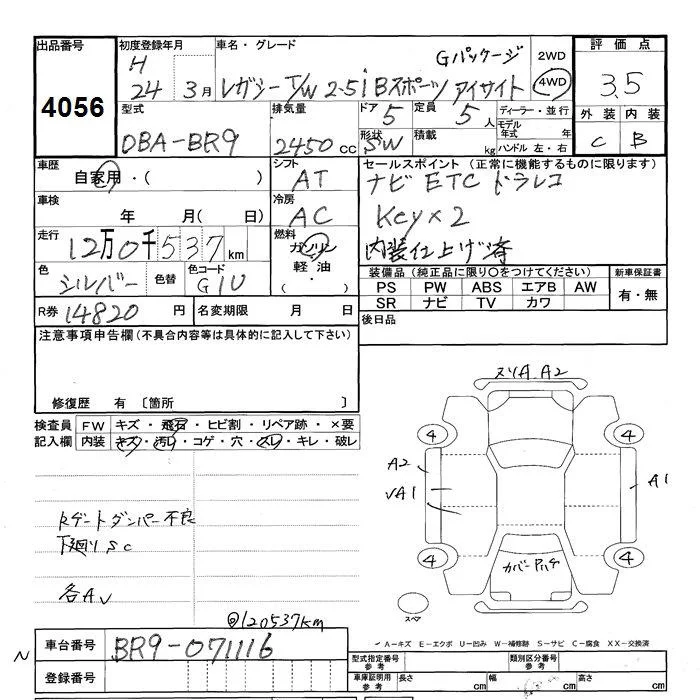 出品番号 初度登録年月 車名・グレード 評価点
4056
H 24 3月 レガシーT/W 2.5i Bスポーツ アイサイト Gパッケージ 2WD 4WD 3.5
型式 排気量 ドア 定員 ディーラー・並行 外装 内装
DBA-BR9 2450cc 5 5人 モデル年式 年 C B
形状 SW 積載 kg ハンドル 左・右
車歴 自家用・( ) シフト AT セールスポイント (正常に機能するものに限ります)
ナビ ETC ドラレコ
車検 年 月( 日) 冷房 AC Key×2
走行 12万0千537km 燃料 ガソリン 軽油・ 内装仕上げ済
色 シルバー 色替 色コード G1U
装備品 (純正品に限り○をつけてください) 新車保証書
PS PW ABS エアB AW 有・無
SR ナビ TV カワ
R券 14820円 名変期限 月 日 後日品
注意事項申告欄(不具合内容等は具体的に記入して下さい)
修復歴 有 〔箇所 〕
検査員 FW キズ・飛石・ヒビ割・リペア跡・×要
記入欄 内装 キズ・汚れ・コゲ・穴・スレ・キレ・破レ
ヌリA A2
4 4
A2 A1
√A1
Rゲートダンパー不良
下廻りSC
カバーPハゲ
4 4
各A√
スペア
◎120537km
A-キズ E-エクボ U-凹み W-補修跡 S-サビ C-腐食 XX-交換済
N 車台番号 BR9-071116
型式指定番号 参考 類別区分番号 参考
登録番号 車庫証明用 参考 長さ cm 幅 cm 高さ cm